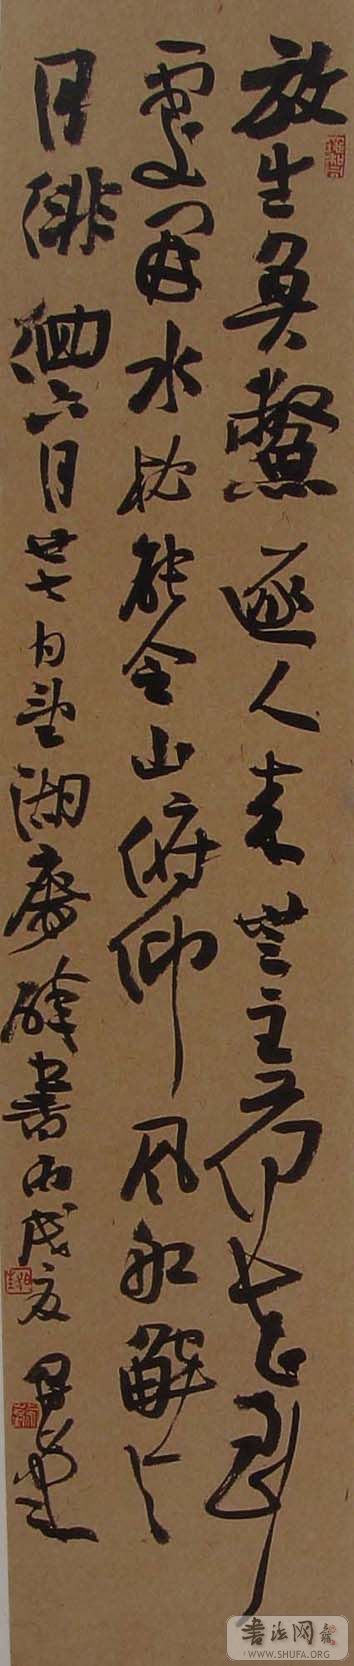 放生魚鱉逐人来無主荷花到
處開水枕能令山俯仰風船解与
月徘徊六月廿七日望湖樓醉書丙戌夏
書法网
WWW.SHUFA.ORG